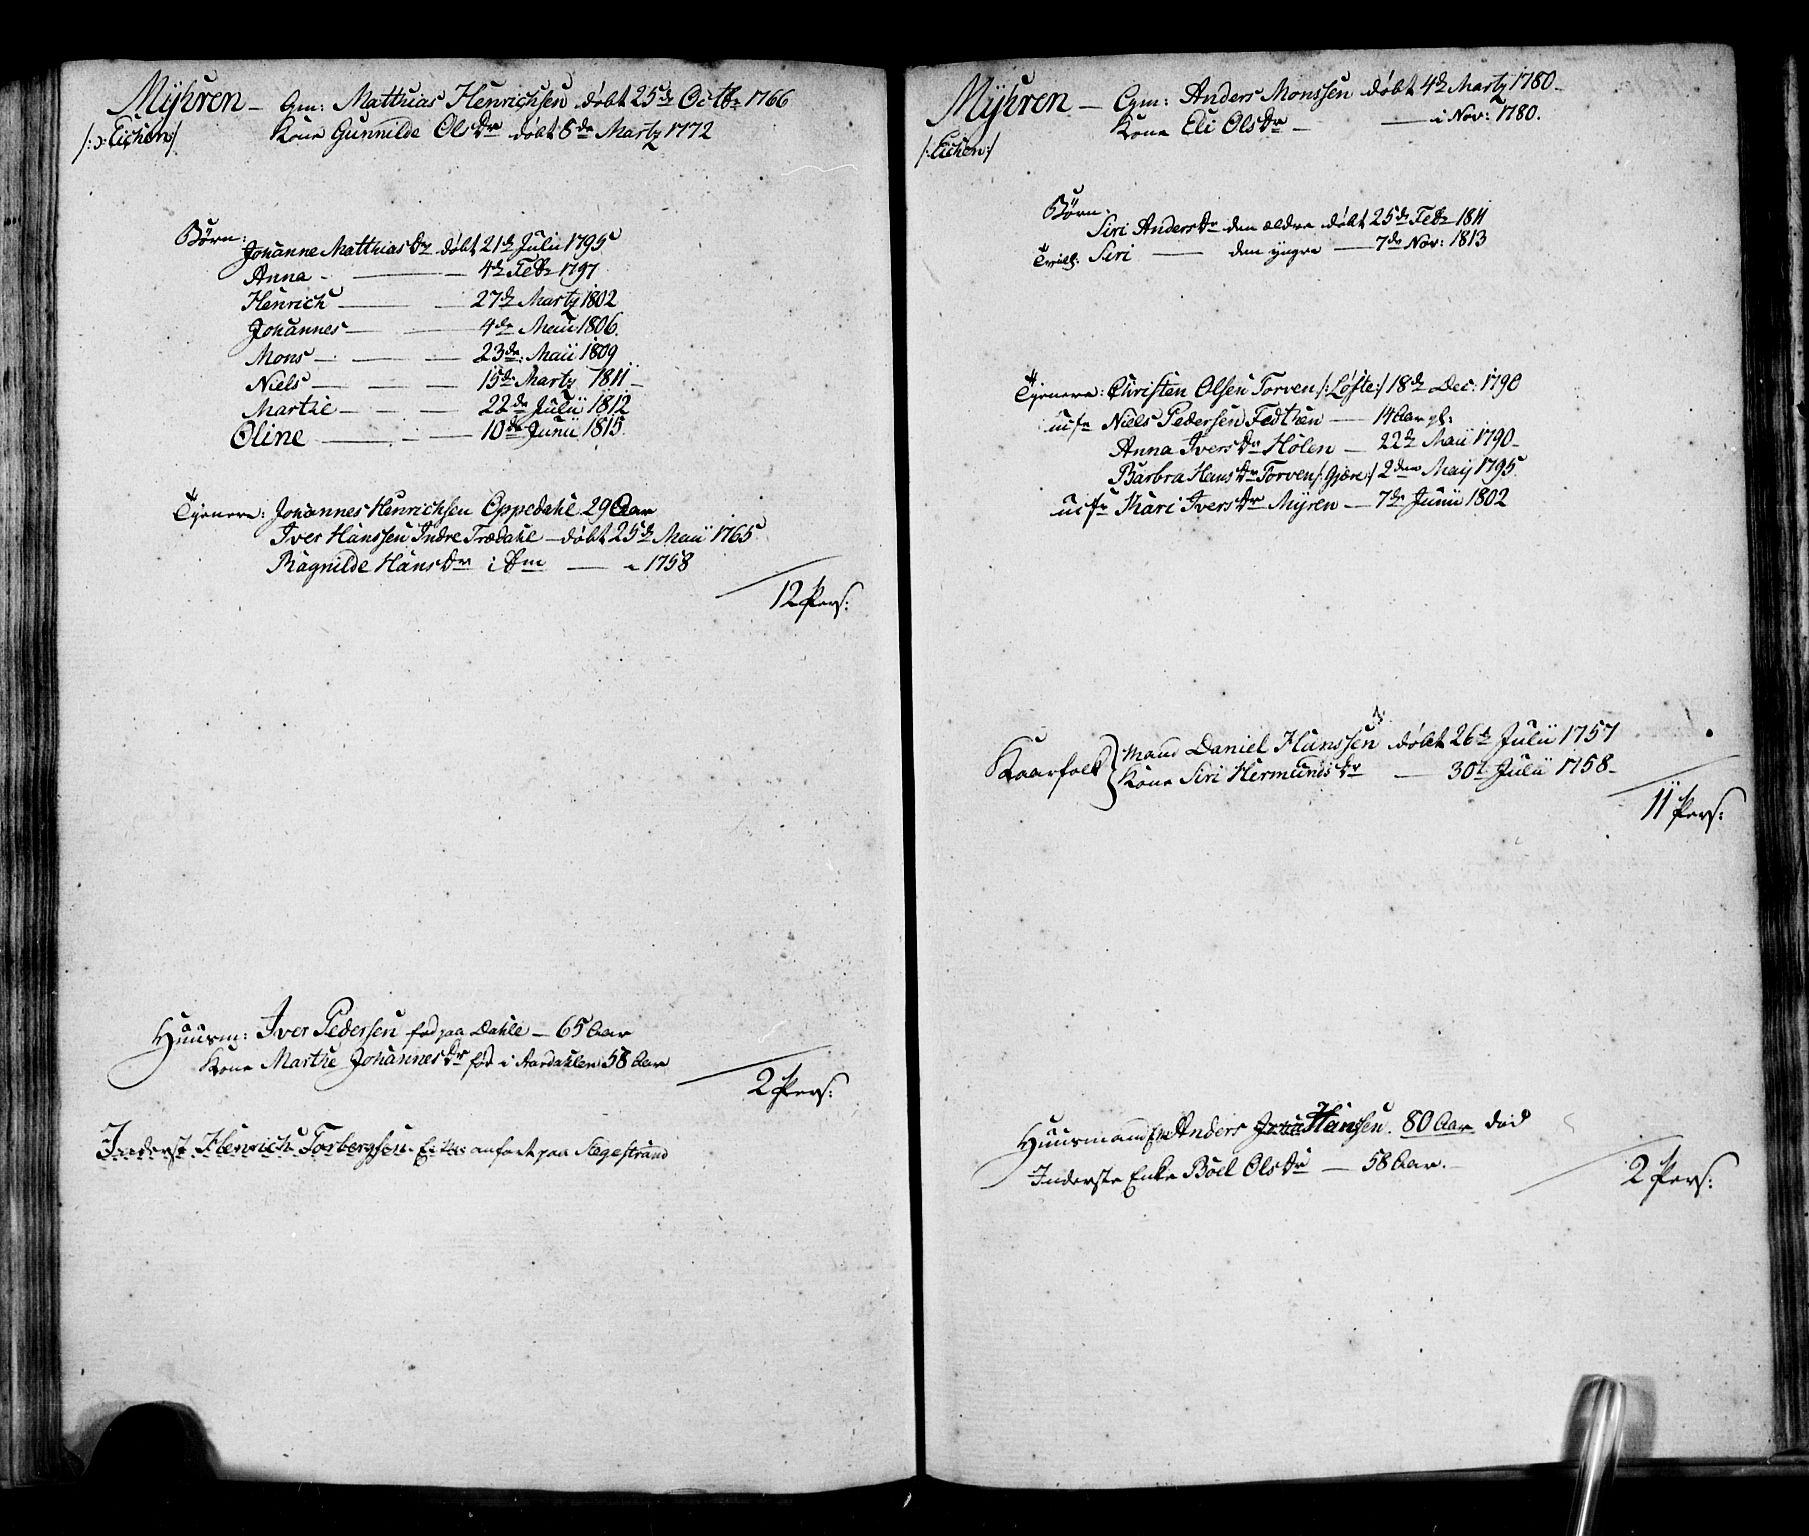 Myhren – Gm: Matthias Henrichsen døbt 25de Octbr 1766
/:ɔ: Eichen:/ Kone Gunnilde Olsdr døbt 8de Marty 1772
Børn:
Johanne Matthiasdr døbt 21de Julii 1795
Anna – — — 4de Febr 1797
Henrich — — 27de Marty 1802
Johannes — — 4de Maii 1806.
Mons — — — 23de: Maii 1809
Niels — — — 15de Marty 1811 –
Marthe — — — 22de Julii 1812
Oline — — — 10de Junii 1815.
Tjenere: Johannes Henrichsen Oppedahl 29 Aar
Iver Hanssen Indre Trædahl – døbt 25de Maii 1765
Ragnilde Hansdr — 1758
12 Pers:
Huusm: Iver Pedersen fød paa Dahle – 65 Aar
Kone Marthe Johannesdr fød i Aardahlen 58 Aar
2 Pers:
Inderst Henrich Torbergsen anført paa Slegestrand
Myhren – Gm: Anders Monssen døbt 4de Marty 1780 –
/: Eichen:/ Kone Eli Olsdr – — i Nov: 1780.
Børn:
Siri Andersdr den ældre døbt 25de Febr 1811
Tvill: Siri — den yngre — 7de Nov: 1813
Tjenere: Christen Olsen Torven /: Løfte:/ 18de Dec: 1790
Niels Pedersen — 14 Aar gl:
Anna Iversdr Holen – 22de Maii 1790 –
Barbra Hansdr Torven /: Gjøre:/ 2den Maij 1795
Kari Iversdr Myren – 7de Junii 1802
Kaarfolk } Mand Daniel Hanssen døbt 26de Julii 1757
Kone Siri Hermundsdr — 30te Julii 1758 –
11 Pers:
Huusmand Anders Hansen. 80 Aar død
Inderste Enke Boel Olsdr — 58 Aar. –
2 Pers: